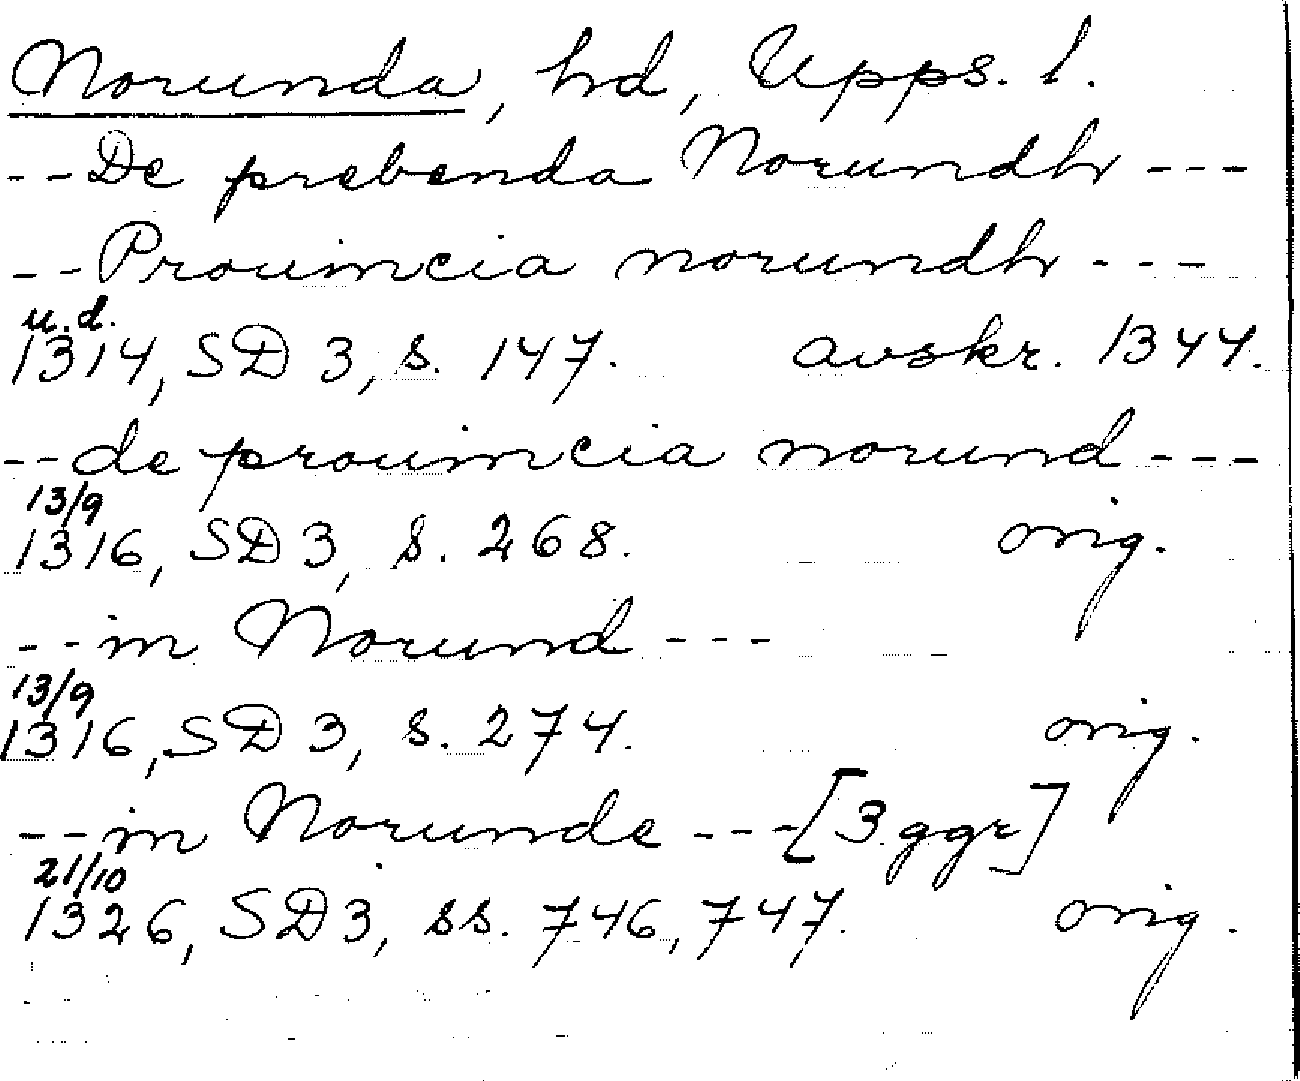 Norunda, hd, Upps. l.
--De prebenda Norundh ---
--Prouincia norundh ---
u.d.
1314, SD 3, s. 147. avskr. 1344.
--de prouincia norund ---
13/9
1316, SD 3, s. 268. orig.
--in Norund ---
13/9
1316, SD 3, s. 274. orig.
--in Norunde ---[3 ggr]
21/10
1326, SD 3, ss. 746, 747. orig.